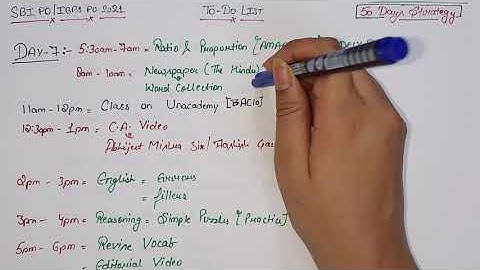 SBI PO/IBPS PO 2021 TO-DO LIST 50 Days Strategy
DAY-7:- 5:30am-7am = Ratio & Proportion
8am - 10am = Newspaper (The Hindu)
Word Collection
11am-12pm = Class on Unacademy
12:30pm - 1pm = C.A. Video
Abhijeet Mishra Sir/Aashish
2pm - 3pm = English =
= fillers
3pm - 4pm = Reasoning = Simple Puzzles [Practice]
5pm - 6pm = Revise Vocab
= Editorial Video